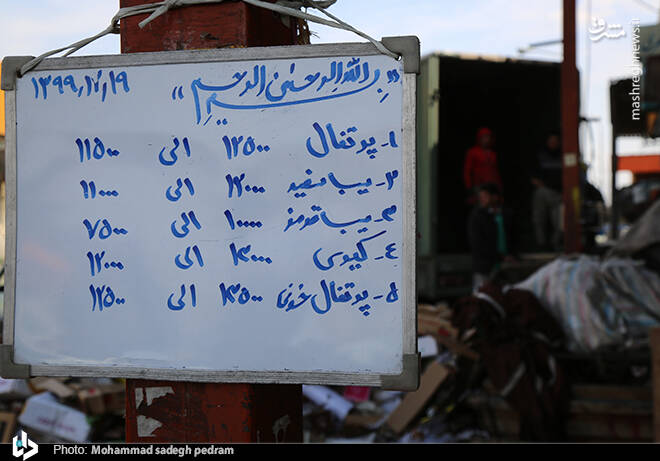 «بسم الله الرحمن الرحیم» ۱۳۹۹,۱۲,۱۹
۱- پرتقال ۱۲۵۰۰ الی ۱۱۵۰۰
۲- سیب سفید ۱۲۰۰۰ الی ۱۱۰۰۰
۳- سیب قرمز ۱۰۰۰۰ الی ۷۵۰۰
۴- کیوی ۱۳۰۰۰ الی ۱۲۰۰۰
۵- پرتقال خونی ۱۳۵۰۰ الی ۱۲۵۰۰
mashreghnews.ir
Photo: Mohammad sadegh pedram